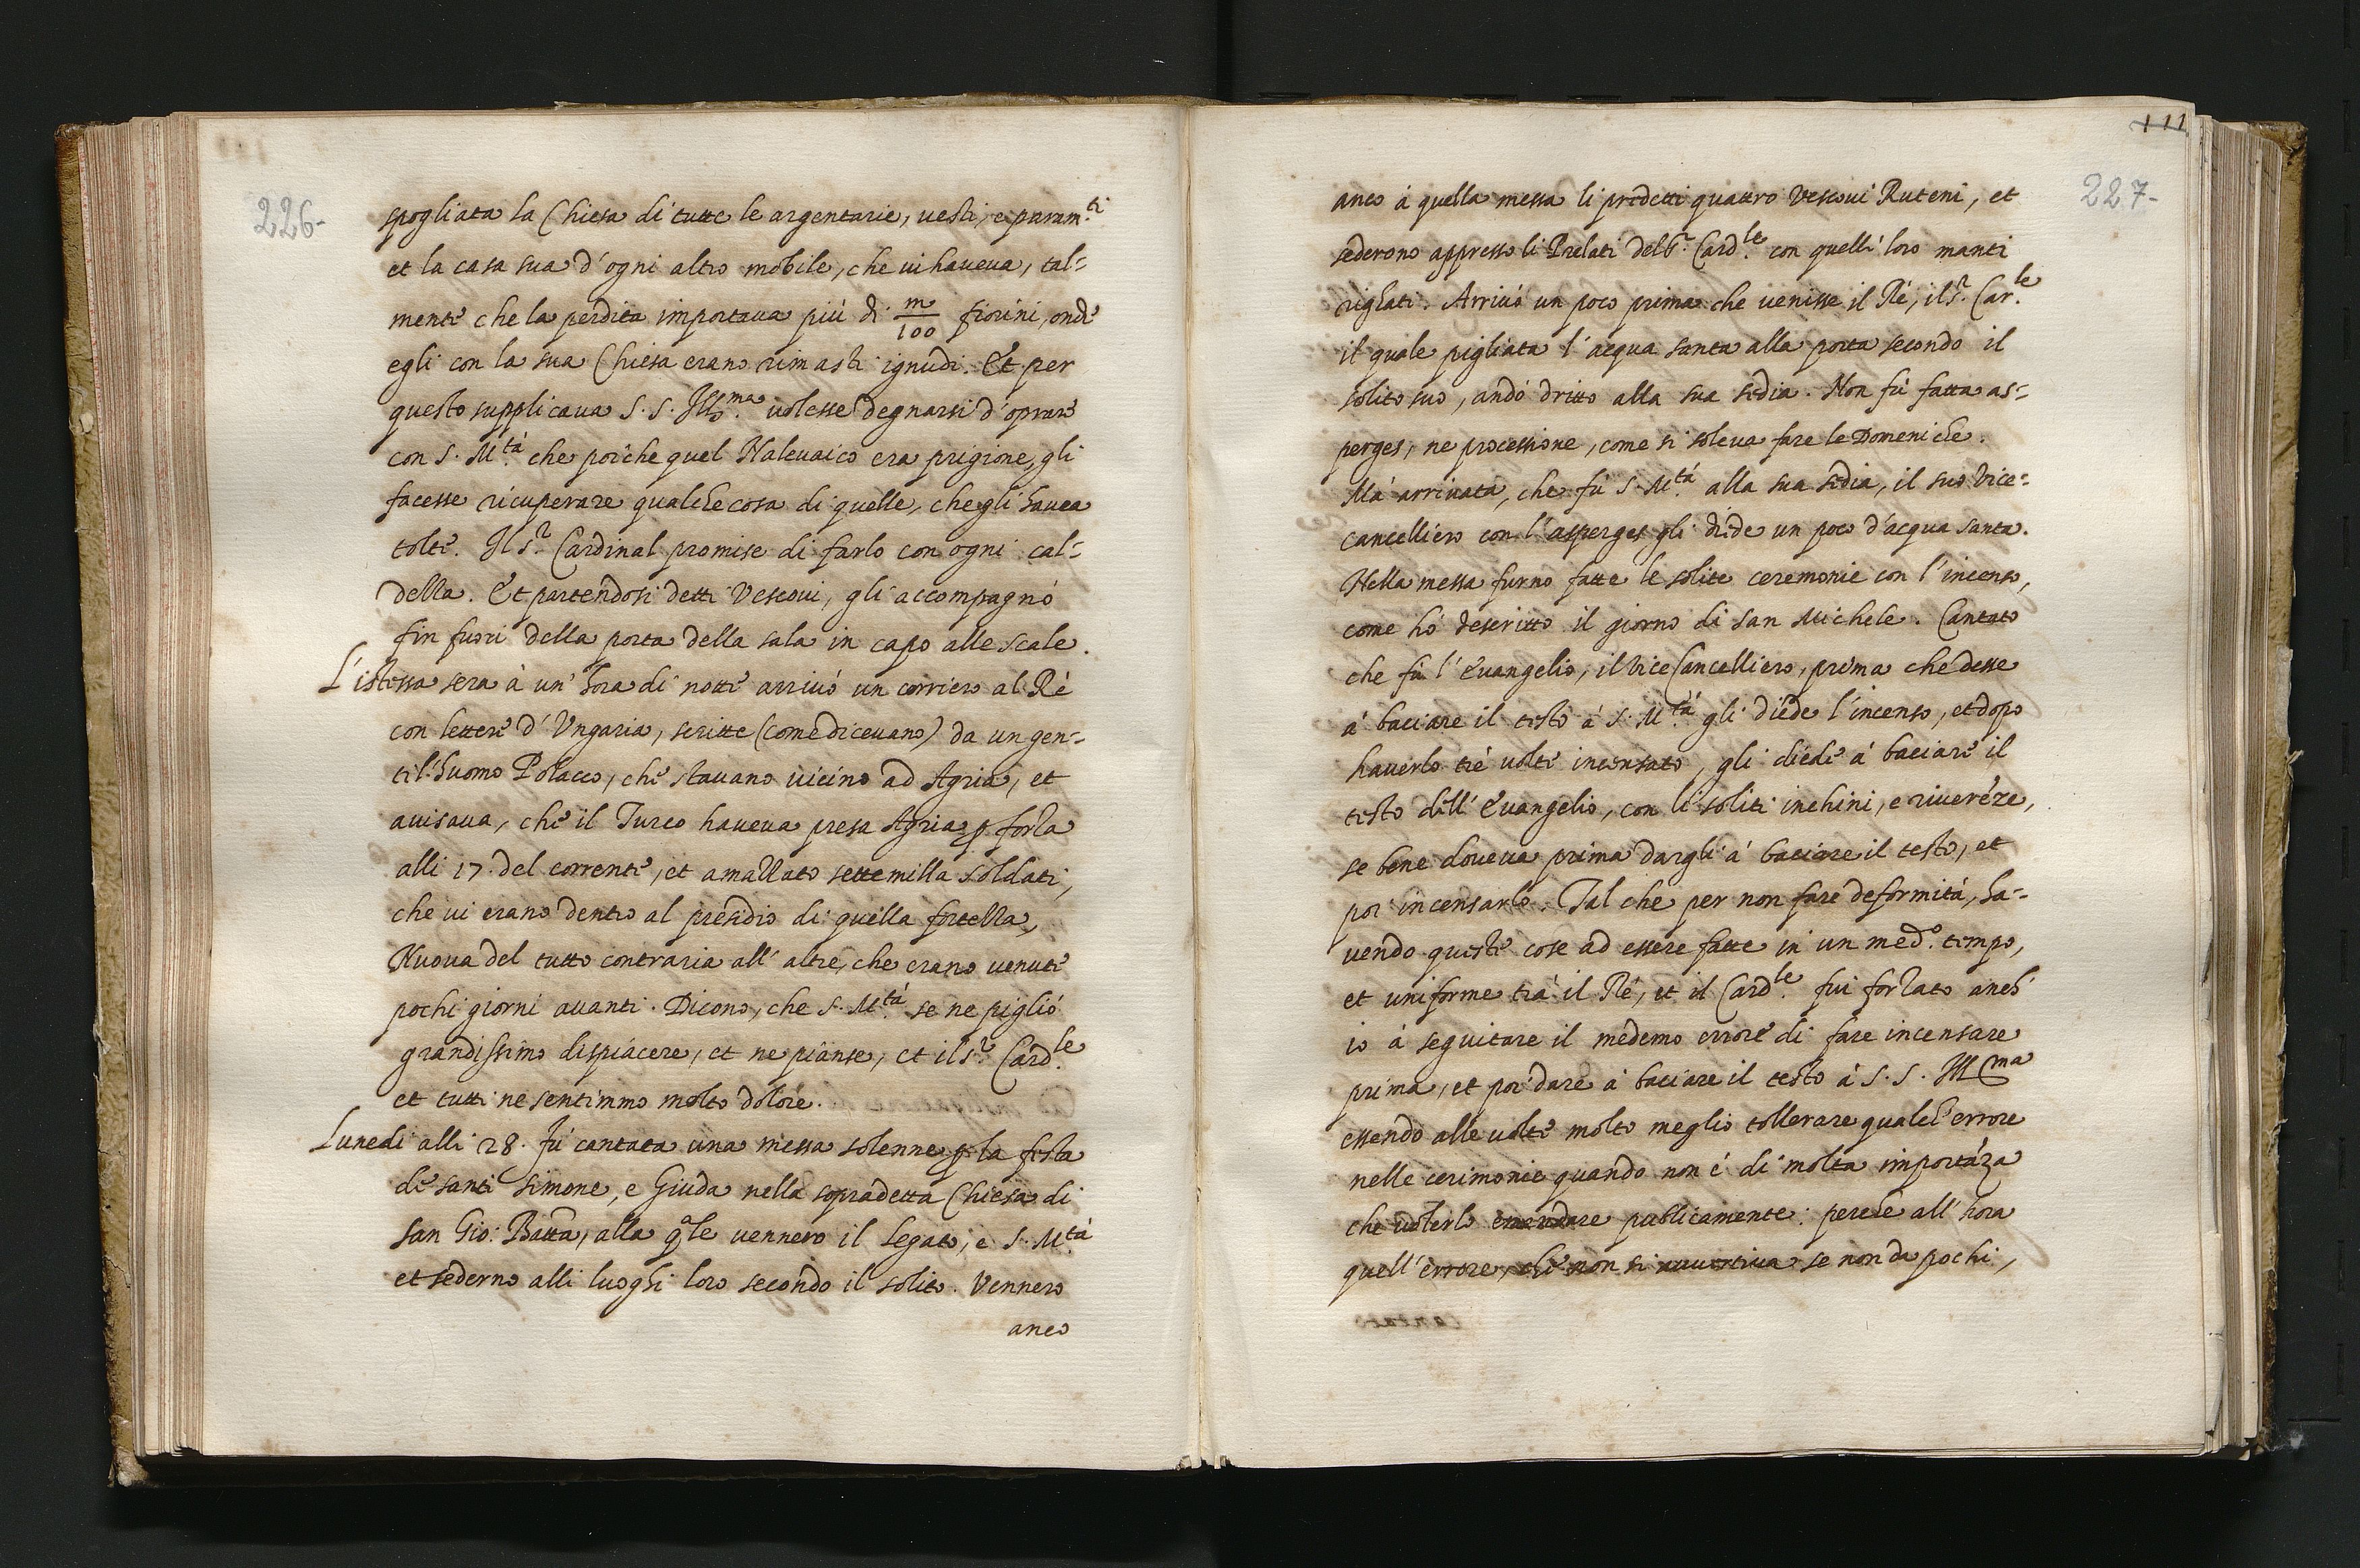 226-
spogliata la Chiesa di tutte le argentarie, uesti, e param.ti
et la casa sua d'ogni altro mobile, che ui haueua, tal=
mente che la perdita importaua più di m/100 fiorini, onde
egli con la sua Chiesa erano rimasti ignudi. Et per
questo supplicaua S. S. Ill.ma uolesse degnarsi d'oprare
con S. M.tà che poiche quel Naleuaico era prigione, gli
facesse ricuperare qualche cosa di quelle, che gli hauea
tolte. Il S.r Cardinal promise di farlo con ogni cal=
dezza. Et partendosi detti Vescoui, gli accompagnò
fin fuori della porta della sala in capo alle scale.
L'istessa sera à un' hora di notte arriuó un corriero al Rè
con lettere d'Vngaria, scritte (come diceuano) da un gen=
til'huomo Polacco, che stauano uicino ad Agria, et
auisaua, che il Turco haueua presa Agria p forza
alli 17. del corrente, et amazzato sette milla soldati,
che ui erano dentro al presidio di quella fortezza,
Nuoua del tutto contraria all' altre, che erano uenute
pochi giorni auanti. Dicono, che S. M.tà se ne pigliò
grandissimo dispiacere, et ne pianse, et il S.r Card.le
et tutti ne sentimmo molto dolore.
Lunedi alli 28. fu cantata una messa solenne p la festa
de santi Simone, e Giuda nella sopradetta Chiesa di
San Gio: Batta, alla qle uennero il Legato, e S. M.tà
et sederno alli luoghi loro secondo il solito. Vennero
anco
111
227-
anco à quella messa li predetti quattro Vescoui Ruteni, et
sederono appresso li Prelati del S.r Card.le con quelli loro manti
righati. Arriuò un poco prima che uenisse il Ré, il S.r Car.le
il quale pigliata l'acqua santa alla porta secondo il
solito suo, andò dritto alla sua sedia. Non fù fatta as=
perges, ne processione, come si soleua fare le Domeniche.
Mà arriuata, che fù S. M.tá alla sua sedia, il suo Vice=
cancelliero con l'asperges gli diede un poco d'acqua santa.
Nella messa furno fatte le solite ceremonie con l'incenso,
come hò descritto il giorno di San Michele. Cantato
che fù l'Euangelio, il Vice Cancelliero, prima che desse
à baciare il testo à S. M.tá gli diede l'incenso, et dopo
hauerlo trè uolte incensato, gli diede à baciare il
testo dell' Euangelio, con li soliti inchini, e riuerẽze,
se bene doueua prima dargli à baciare il testo, et
poi incensarlo. Tal che per non fare deformità, ha=
uendo queste cose ad essere fatte in un med.o tempo,
et uniforme trà il Rè, et il Card.le fui forzato anch'
io à seguitare il medemo errore di fare incensare
prima, et poi dare à baciare il testo à S. S. Ill.ma
essendo alle uolte molto meglio tollerare qualch'errore
nelle cerimonie quando non é di molta importáza
che uolerlo emendare publicamente: perche all' hora
quell' errore, che non si auuertiua se non da pochi,